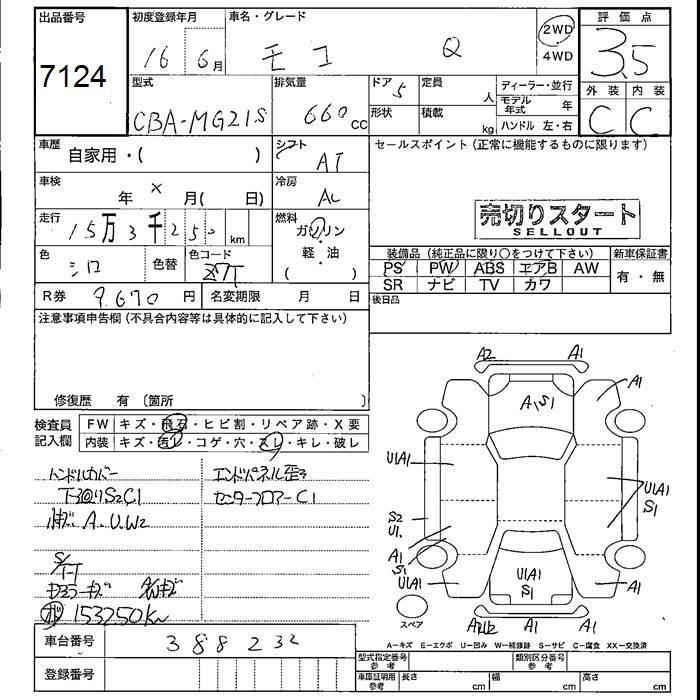 出品番号 初度登録年月 車名・グレード 評価点
7124 16 6月 モコ Q 2WD 4WD 3.5
型式 排気量 ドア 5 定員 人 ディーラー・並行 外装 内装
CBA-MG21S 660 CC 形状 積載 kg モデル年式 年 C C
ハンドル 左・右
車歴 自家用・( ) シフト AT セールスポイント(正常に機能するものに限ります)
車検 年 × 月( 日) 冷房 AC
走行 15万3千250 km 燃料 ガソリン・軽・油 ( )
売切りスタート
SELLOUT
色 シロ 色替 色コード Z7T
装備品(純正品に限り○をつけて下さい) 新車保証書
PS PW ABS エアB AW 有・無
SR ナビ TV カワ
R券 9.670 円 名変期限 月 日 後日品
注意事項申告欄(不具合内容等は具体的に記入して下さい)
修復歴 有(箇所 )
検査員記入欄 FW キズ・飛石・ヒビ割・リペア跡・X要
内装 キズ・汚レ・コゲ・穴・スレ・キレ・破レ
ハンドルカバー エンドパネル歪み
下回りS2C1 センターフロアーC1
A.U.W2
S/T-T
153250Km
A2 A1
A1S1 A1
U1A1 U1A1 S1
S2 U1
A1 S1
U1A1 U1A1 S1 A1
スペア A1 A1
A=キズ E=エクボ U=凹み W=補修跡 S=サビ C=腐食 XX=交換済
車台番号 388232
型式指定番号 参考 類別区分番号 参考
登録番号 車庫証明用 参考 長さ cm 幅 cm 高さ cm